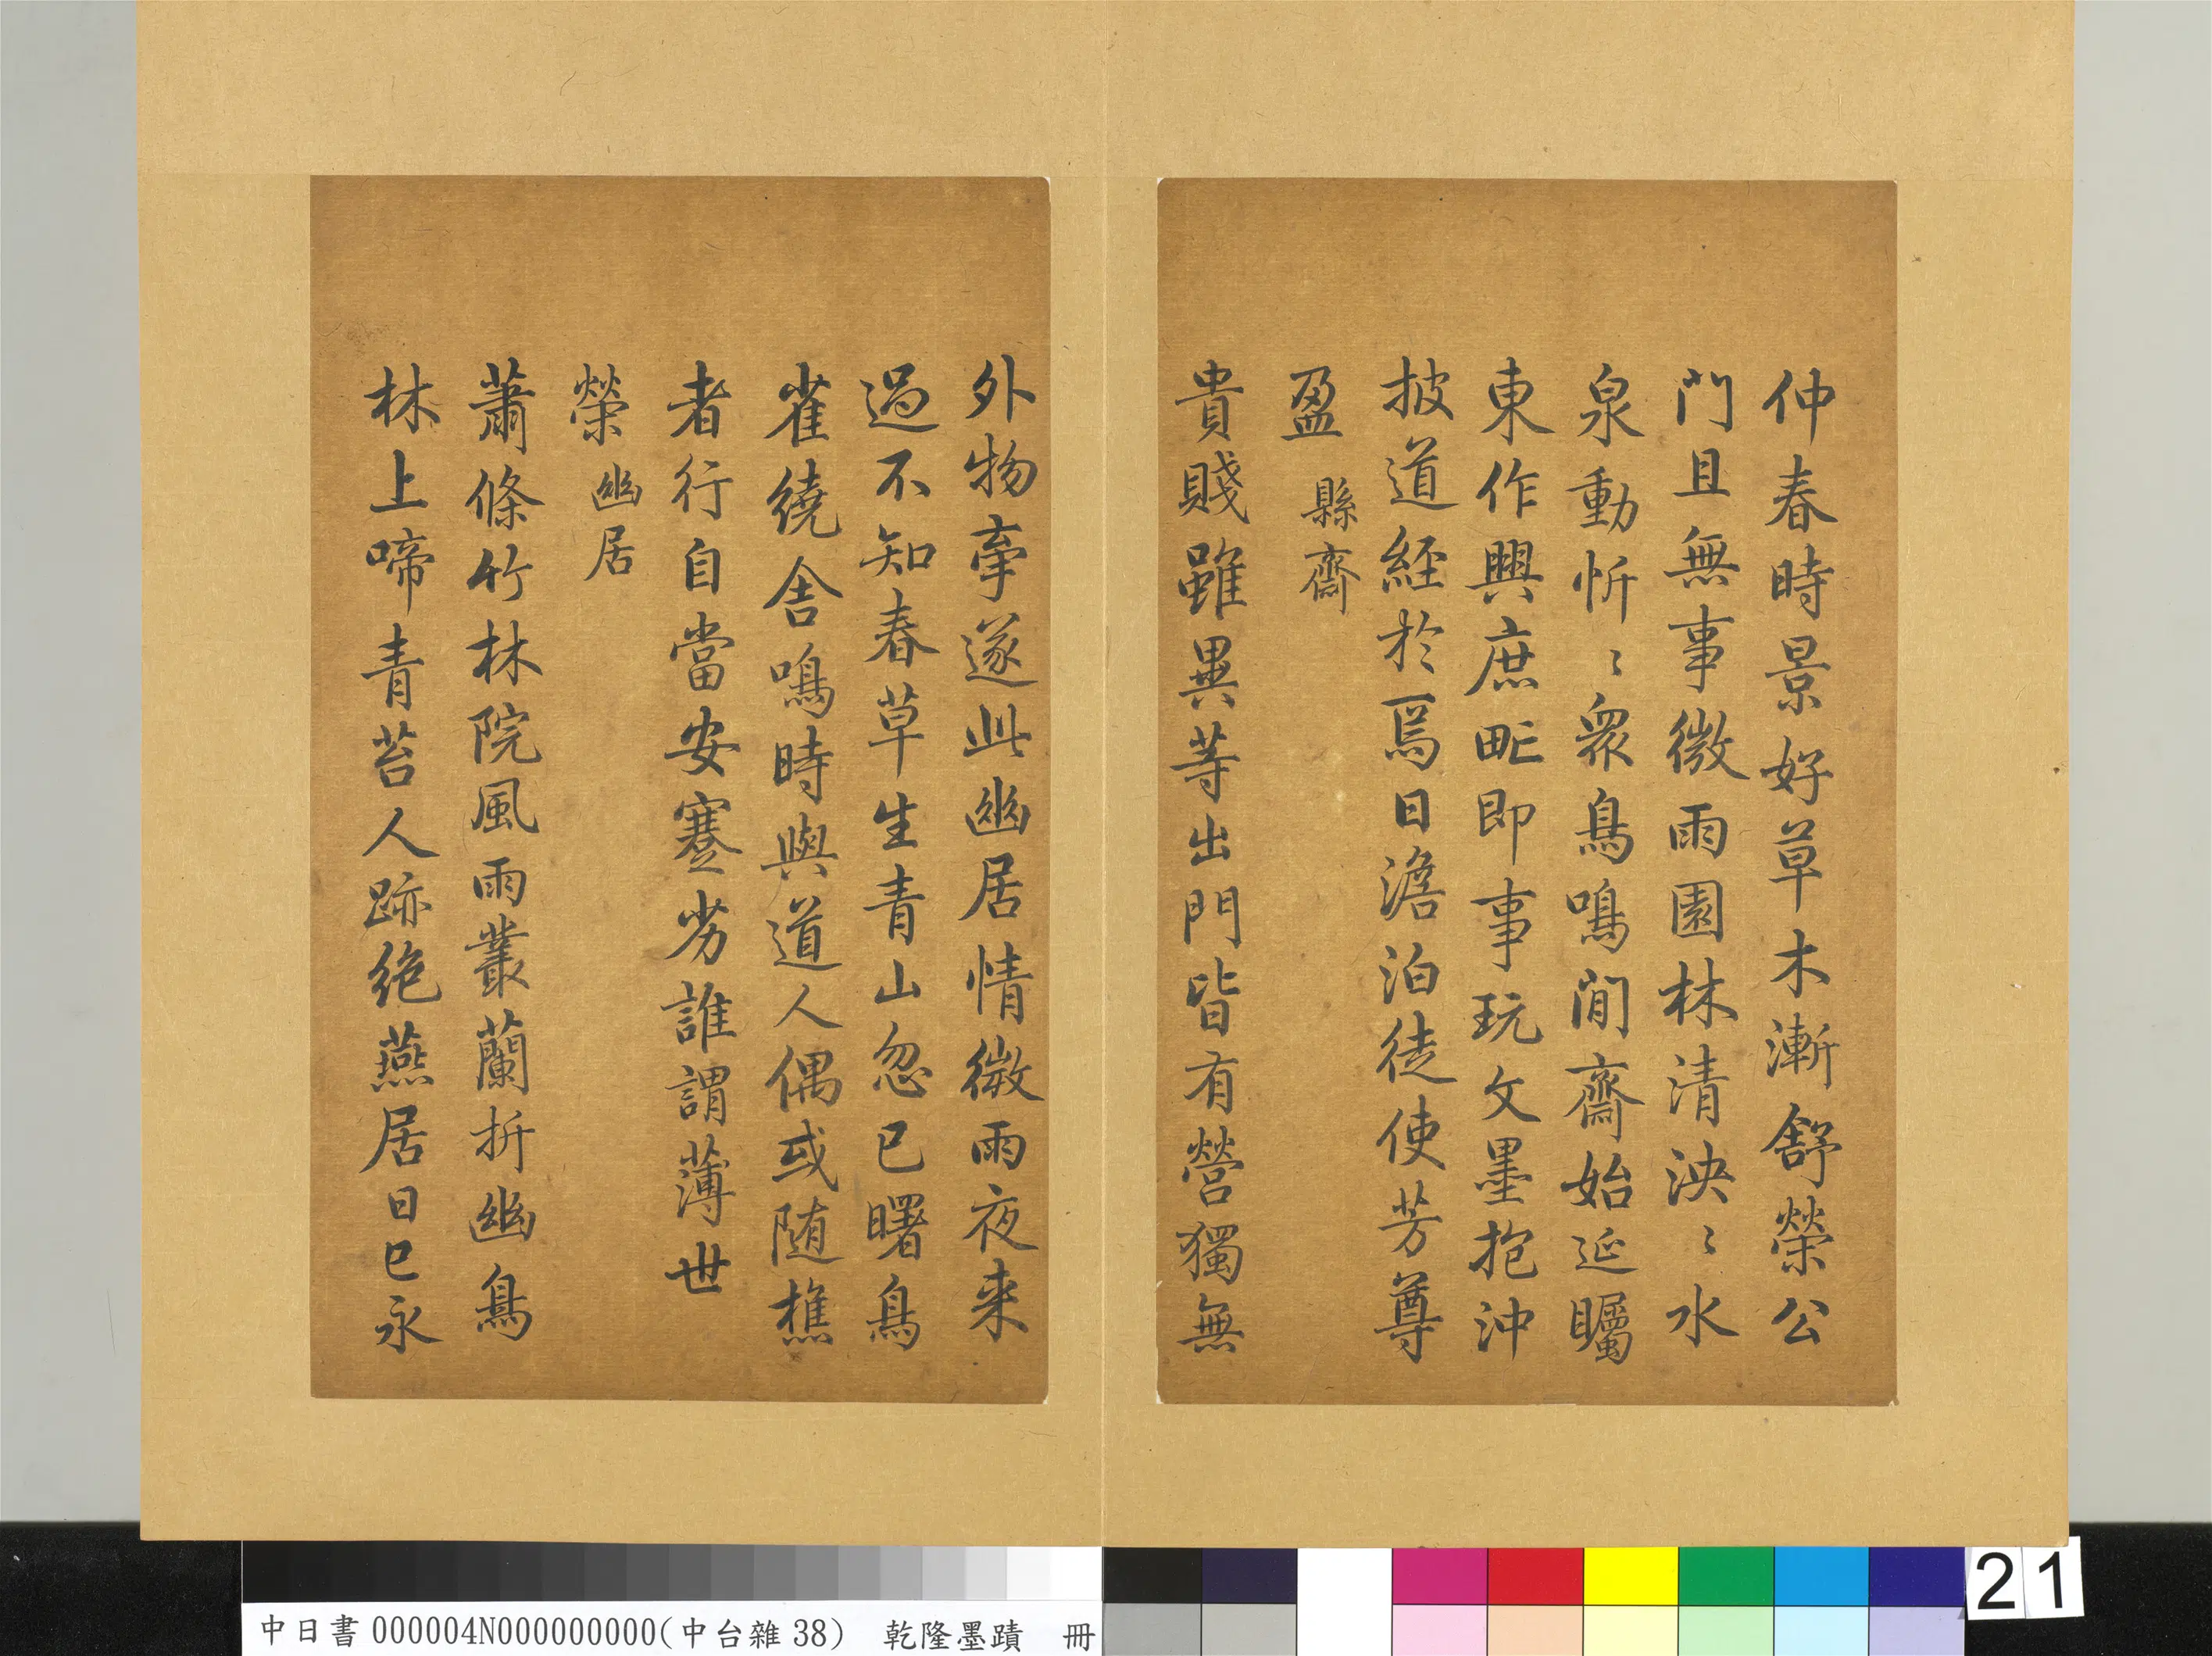 仲春時景好草木漸舒榮公
門且無事微雨園林清泱〻水
泉動忻〻衆鳥鳴閒齋始延矚
東作興庶甿即事玩文墨抱沖
披道經於焉日澹泊徒使芳尊
盈 縣齋
貴賤雖異等出門皆有營獨無
外物牽遂此幽居情微雨夜来
過不知春草生青山忽已曙鳥
雀繞舍鳴時與道人偶或随樵
者行自當安蹇劣誰謂薄世
榮 幽居
蕭條竹林院風雨叢蘭折幽鳥
林上啼青苔人跡绝燕居日已永
中日書000004N000000000(中台雜38) 乾隆墨蹟 冊
21